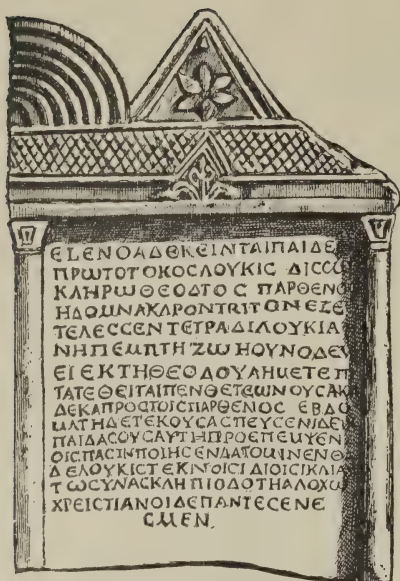 ΕΞΕΝΘΑΔΕΚΕΙΝΤΑΙΠΑΙΔΕ
ΠΡΩΤΟΤΟΚΟСΛΟΥΚΙС ΔΙССѠ
ΚΛΗΡΩΘΕΟΔΤΟС ΠΑΡΘΕΝΟ
ΗΔΟΜΝΑΚΛΡΟΝΤΡΙΤΟΝΕΞΕ
ΤΕΛΕССΕΝΤΕΤΡΑΔΙΛΟΥΚΙΑ
ΝΗΠΕΜΠΤΗΖΩΗΟΥΝΟΔΕΥ
ΕΙΕΚΤΗΘΕΟΔΟΥΛΗΜΕΤΕΠ
ΤΑΤΕΘΕΙΤΑΙΠΕΝΘΕΤΕѠΝΟΥСΑΚ
ΔΕΚΑΠΡΟСΤΟΙСΠΑΡΘΕΝΟС ΕΒΔΟ
ΜΑΤΗΔΕΤΕΚΟΥСΑСΠΕΥСΕΝΙΔΕΙ
ΠΑΙΔΑСΟΥСΑΥΤΗΠΡΟΕΠΕΜΨΕΝ
ΟΙСΠΑСΙΝΠΟΙΗСΕΝΔΑΤΟΜΙΝΕΝΘ
ΔΕΛΟΥΚΙСΤΕΚΝΟΙСΙΔΙΟΙСΙΚΛΙΑ
ΤѠСΥΝΑСΚΛΗΠΙΟΔΟΤΗΑΛΟΧѠ
ΧΡΕΙСΤΙΑΝΟΙΔΕΠΑΝΤΕСΕΝΕ
СΜΕΝ.